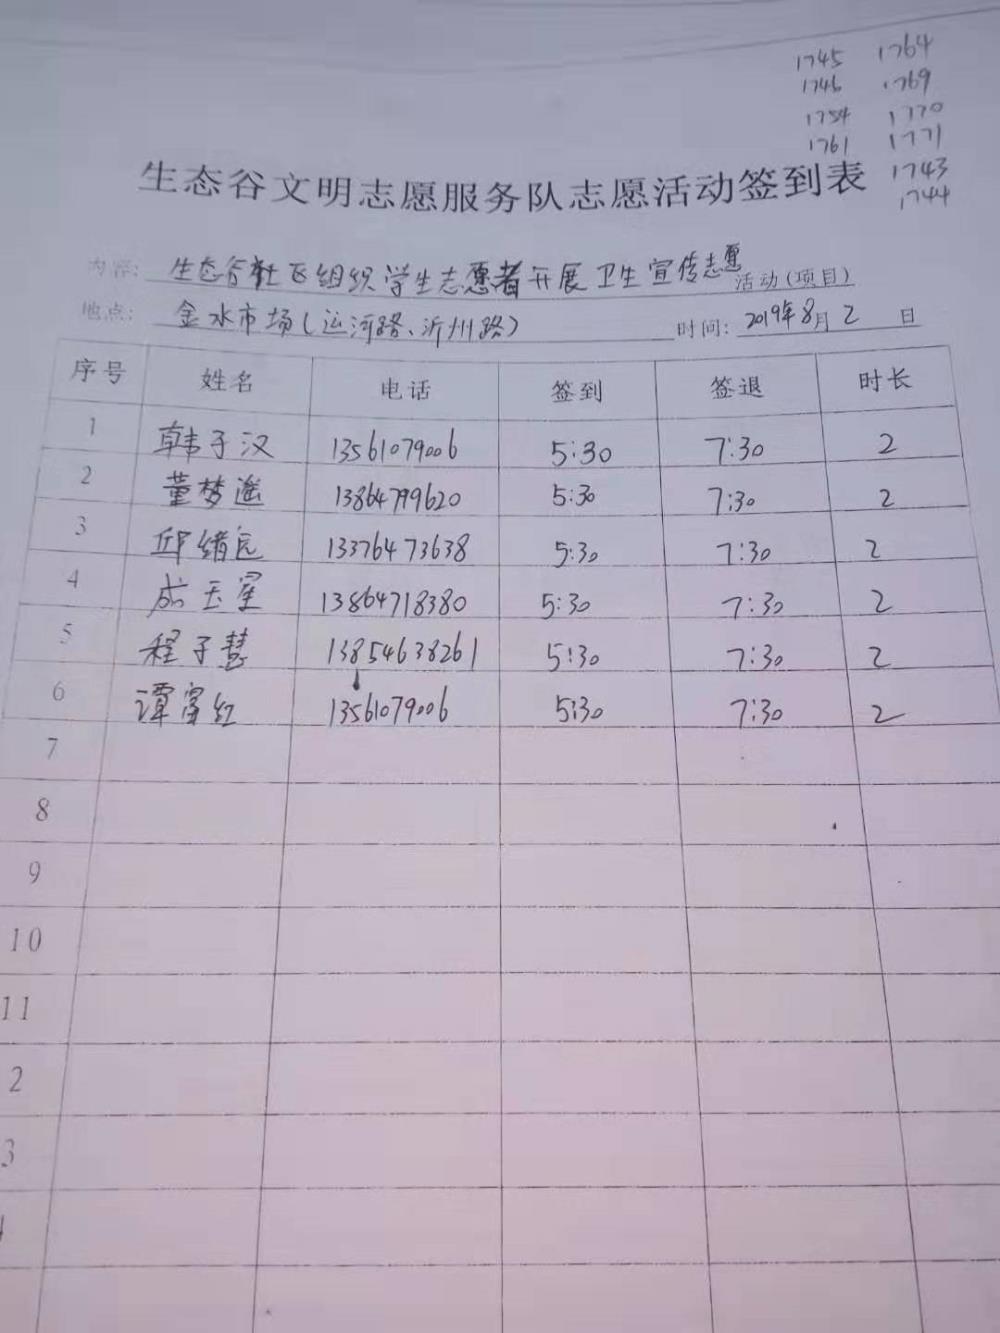 1745 1764
1746 1769
1754 1770
1761 1771
1743
1744
生态谷文明志愿服务队志愿活动签到表
内容: 生态谷社区组织学生志愿者开展卫生宣传志愿 活动(项目)
地点: 金水市场(运河路、沂州路) 时间: 2019年8月2日
序号 姓名 电话 签到 签退 时长
1 韩子汉 13561079006 5:30 7:30 2
2 董梦遥 13864799620 5:30 7:30 2
3 邱绪远 13376473638 5:30 7:30 2
4 成玉星 13864718380 5:30 7:30 2
5 程子慧 13854638261 5:30 7:30 2
6 谭富红 13561079006 5:30 7:30 2
7
8
9
10
11
2
3